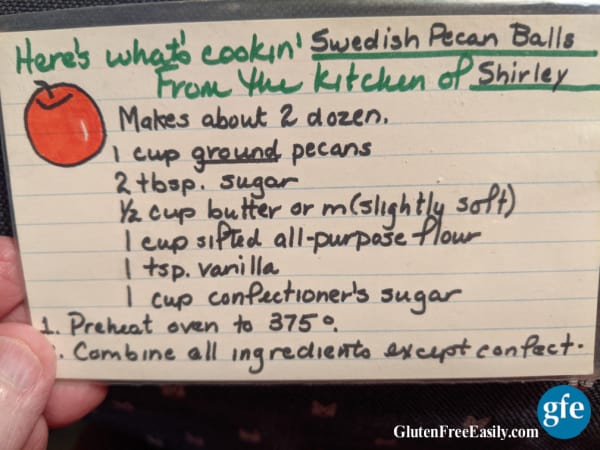 Here's what's cookin' Swedish Pecan Balls
From the kitchen of Shirley
Makes about 2 dozen.
1 cup ground pecans
2 tbsp. sugar
½ cup butter or m(slightly soft)
1 cup sifted all-purpose flour
1 tsp. vanilla
1 cup confectioner's sugar
1. Preheat oven to 375°.
. Combine all ingredients except confect.
gfe
GlutenFreeEasily.com